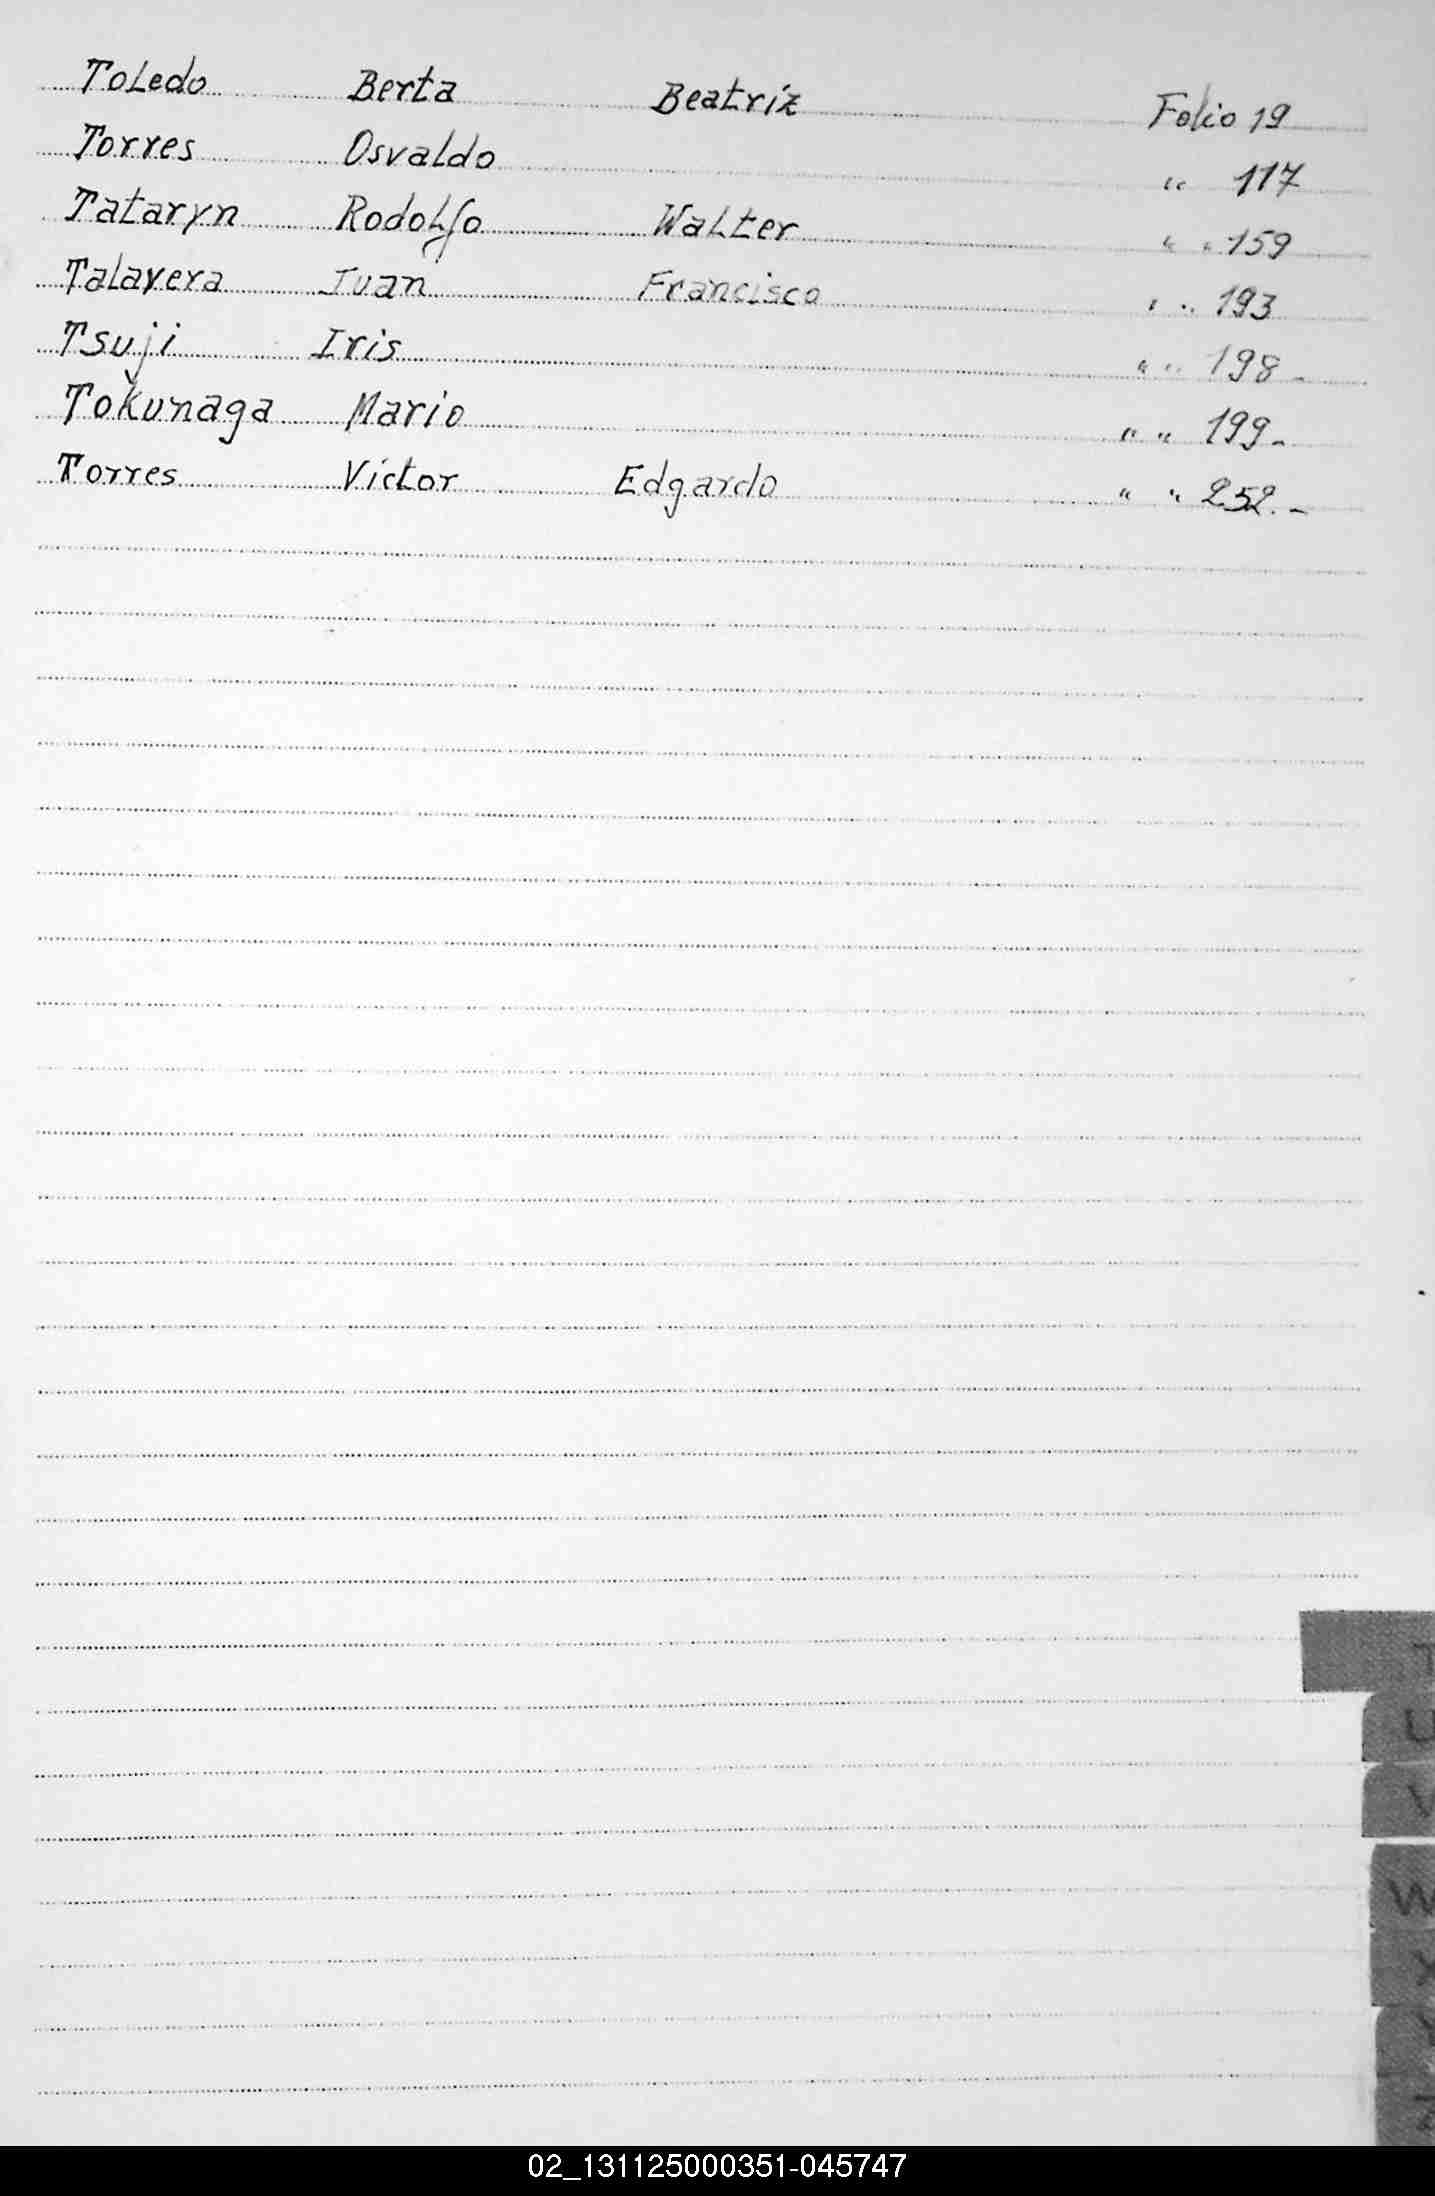 Toledo Berta Beatríz Folio 19
Torres Osvaldo " 117
Tataryn Rodolfo Walter " " 159
Talavera Juan Francisco " " 193
Tsuji Iris " " 198-
Tokunaga Mario " " 199-
Torres Víctor Edgardo " " 252.-
T
U
V
W
X
Y
Z
02_131125000351-045747